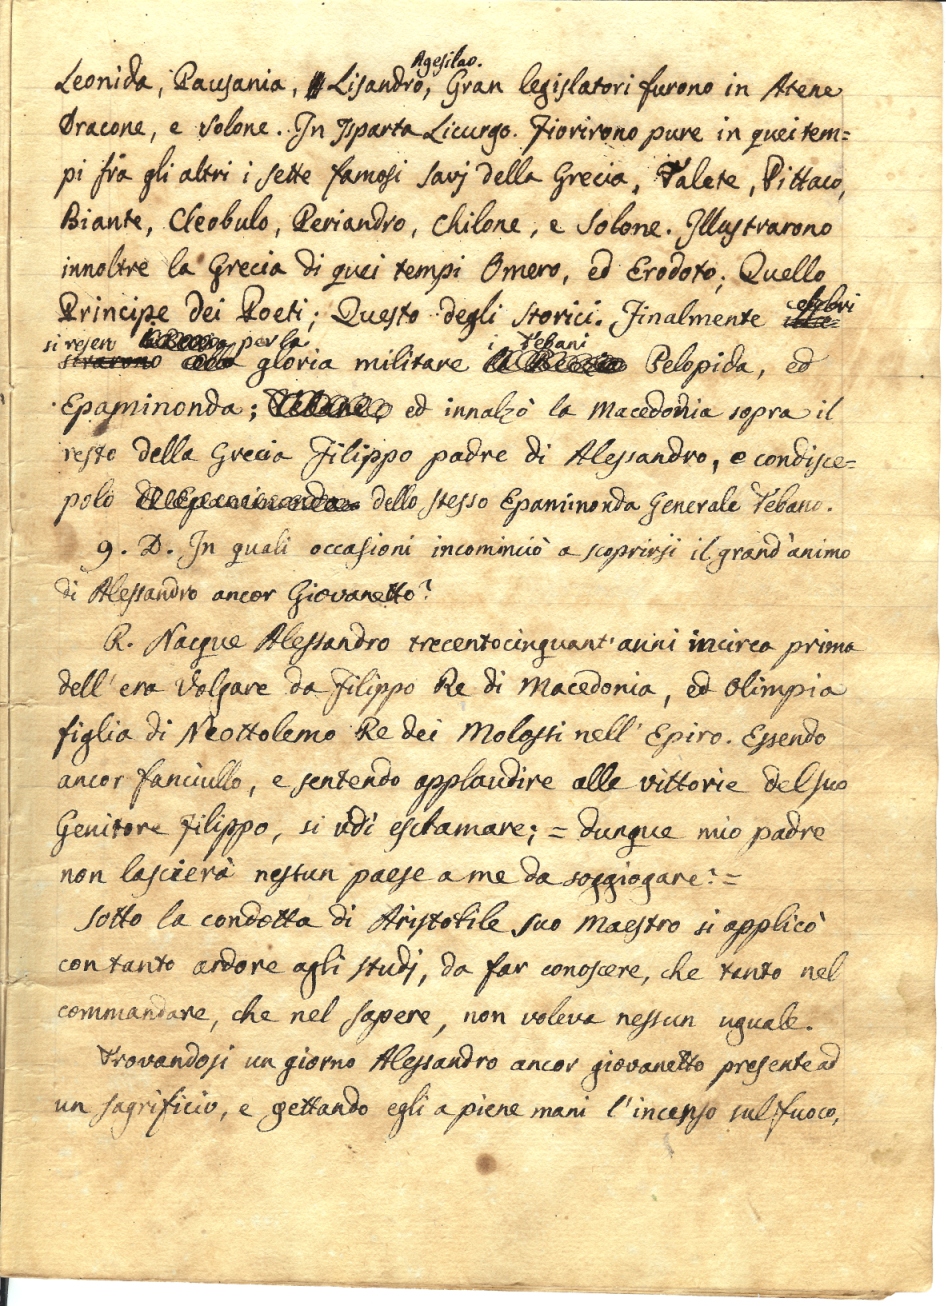 Agesilao.
Leonida, Pausania, Lisandro, Gran legislatori furono in Atene
Dracone, e Solone. In Isparta Licurgo. Fiorirono pure in quei tem=
pi frà gli altri i sette famosi Savj della Grecia, Talete, Pittaco,
Biante, Cleobulo, Periandro, Chilone, e Solone. Illustrarono
innoltre la Grecia di quei tempi Omero, ed Erodoto; Quello
Principe dei Poeti; Questo degli Storici. Finalmente illu=
celebri
si resero per la i Tebani
strarono gloria militare Pelopida, ed
Epaminonda; Tebano, ed innalzò la Macedonia sopra il
resto della Grecia Filippo padre di Alessandro, e condisce=
polo d'Epaminonda dello stesso Epaminonda Generale Tebano.
9. D. In quali occasioni incominciò a scoprirsi il grand'animo
di Alessandro ancor Giovanetto?
R. Nacque Alessandro trecentocinquant'anni incirca prima
dell'era Volgare da Filippo Re di Macedonia, ed Olimpia
figlia di Neottolemo Re dei Molossi nell'Epiro. Essendo
ancor fanciullo, e sentendo applaudire alle vittorie del suo
Genitore Filippo, si udì esclamare; = dunque mio padre
non lascierà nessun paese a me da soggiogare? =
Sotto la condotta di Aristotile suo Maestro si applicò
con tanto ardore agli studj, da far conoscere, che tanto nel
commandare, che nel sapere, non voleva nessun uguale.
Trovandosi un giorno Alessandro ancor giovanetto presente ad
un sagrificio, e gettando egli a piene mani l'incenso sul fuoco,